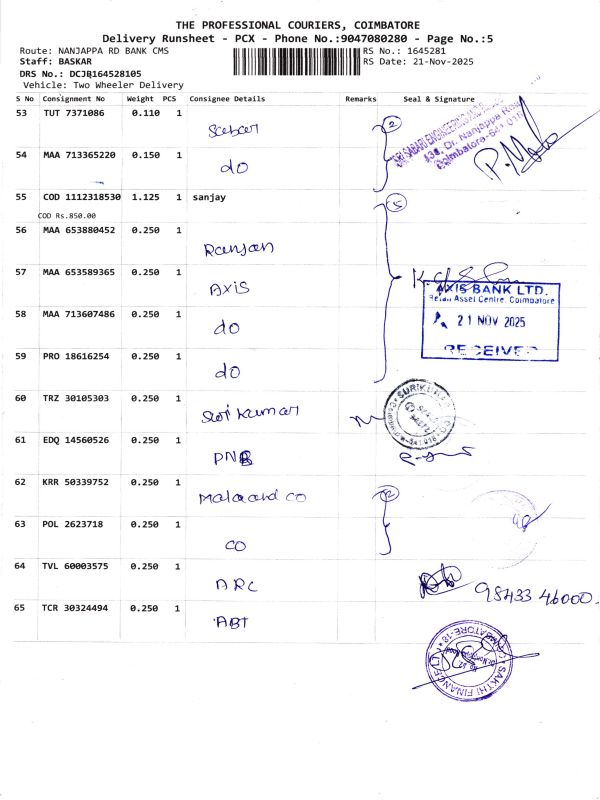 THE PROFESSIONAL COURIERS, COIMBATORE
Delivery Runsheet - PCX - Phone No.:9047080280 - Page No.:5
Route: NANJAPPA RD BANK CMS RS No.: 1645281
Staff: BASKAR RS Date: 21-Nov-2025
DRS No.: DCJB164528105
Vehicle: Two Wheeler Delivery
S No Consignment No Weight PCS Consignee Details Remarks Seal & Signature
53 TUT 7371086 0.110 1
2
SRI SABARI ENGINEERING
Dr. Nanjappa Road
Coimbatore-641 018
54 MAA 713365220 0.150 1
do
55 COD 1112318530 1.125 1 sanjay
5
COD Rs.850.00
56 MAA 653880452 0.250 1
Ranjan
57 MAA 653589365 0.250 1
Axis
AXIS BANK LTD.
Retail Asset Centre, Coimbatore
21 NOV 2025
RECEIVED
58 MAA 713607486 0.250 1
do
59 PRO 18616254 0.250 1
do
60 TRZ 30105303 0.250 1
Suri Kumar
61 EDQ 14560526 0.250 1
PNB
62 KRR 50339752 0.250 1
Mala and co
2
63 POL 2623718 0.250 1
co
64 TVL 60003575 0.250 1
ARC
98433 46000
65 TCR 30324494 0.250 1
ABT
SAKTHI FINANCE